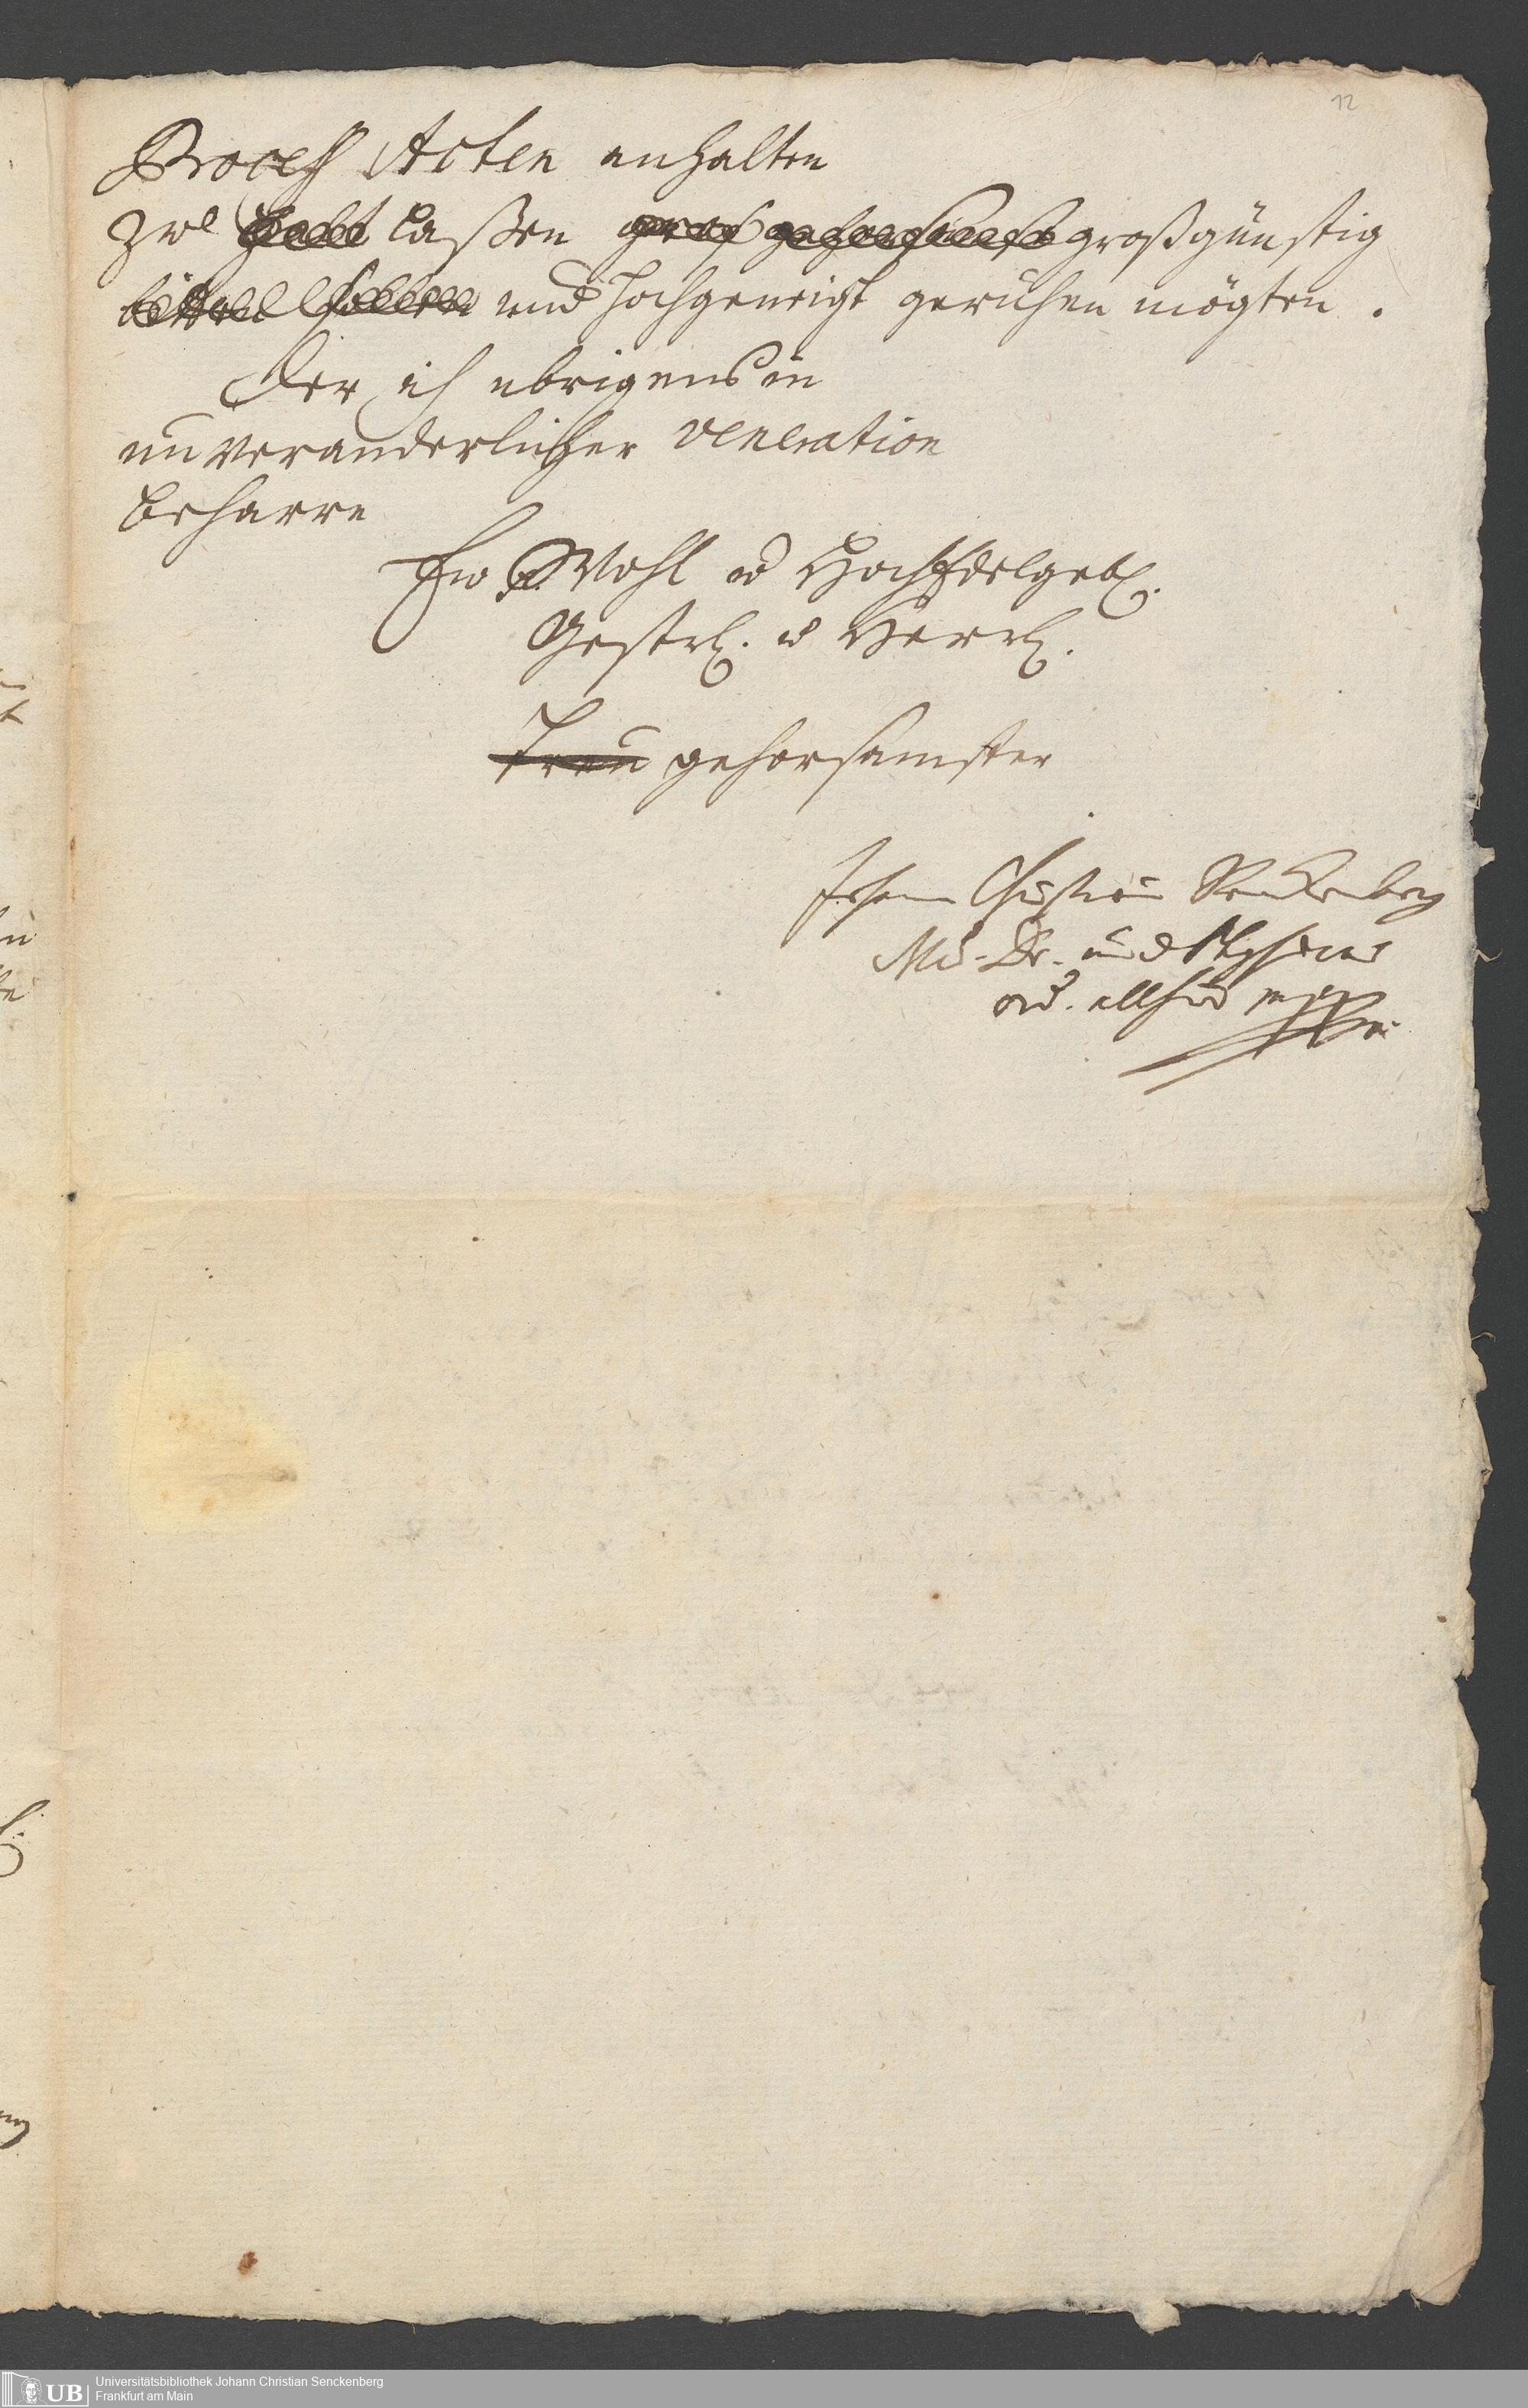 12
Process Acten anhalten
zu laßen großgünstig
und hochgeneigt geruhen mögten.
Der ich ubrigens in
unveranderlicher veneration
beharre
Ew Wohl u Hochedelgeb.
Gestr. u Herrl.
Treu gehorsamster
Johann Christian Senckenberg
Md. Dr. und Physicus
ord. allhier mppr
UB
Universitätsbibliothek Johann Christian Senckenberg
Frankfurt am Main